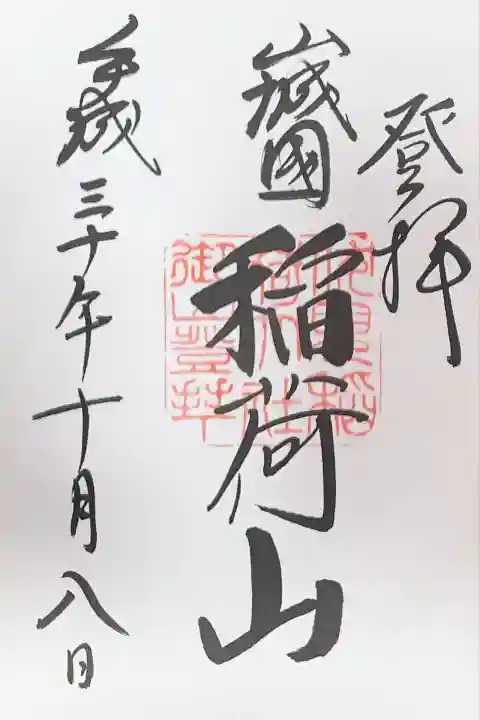 登拝
山城國
稲荷山
平成三十年十月八日